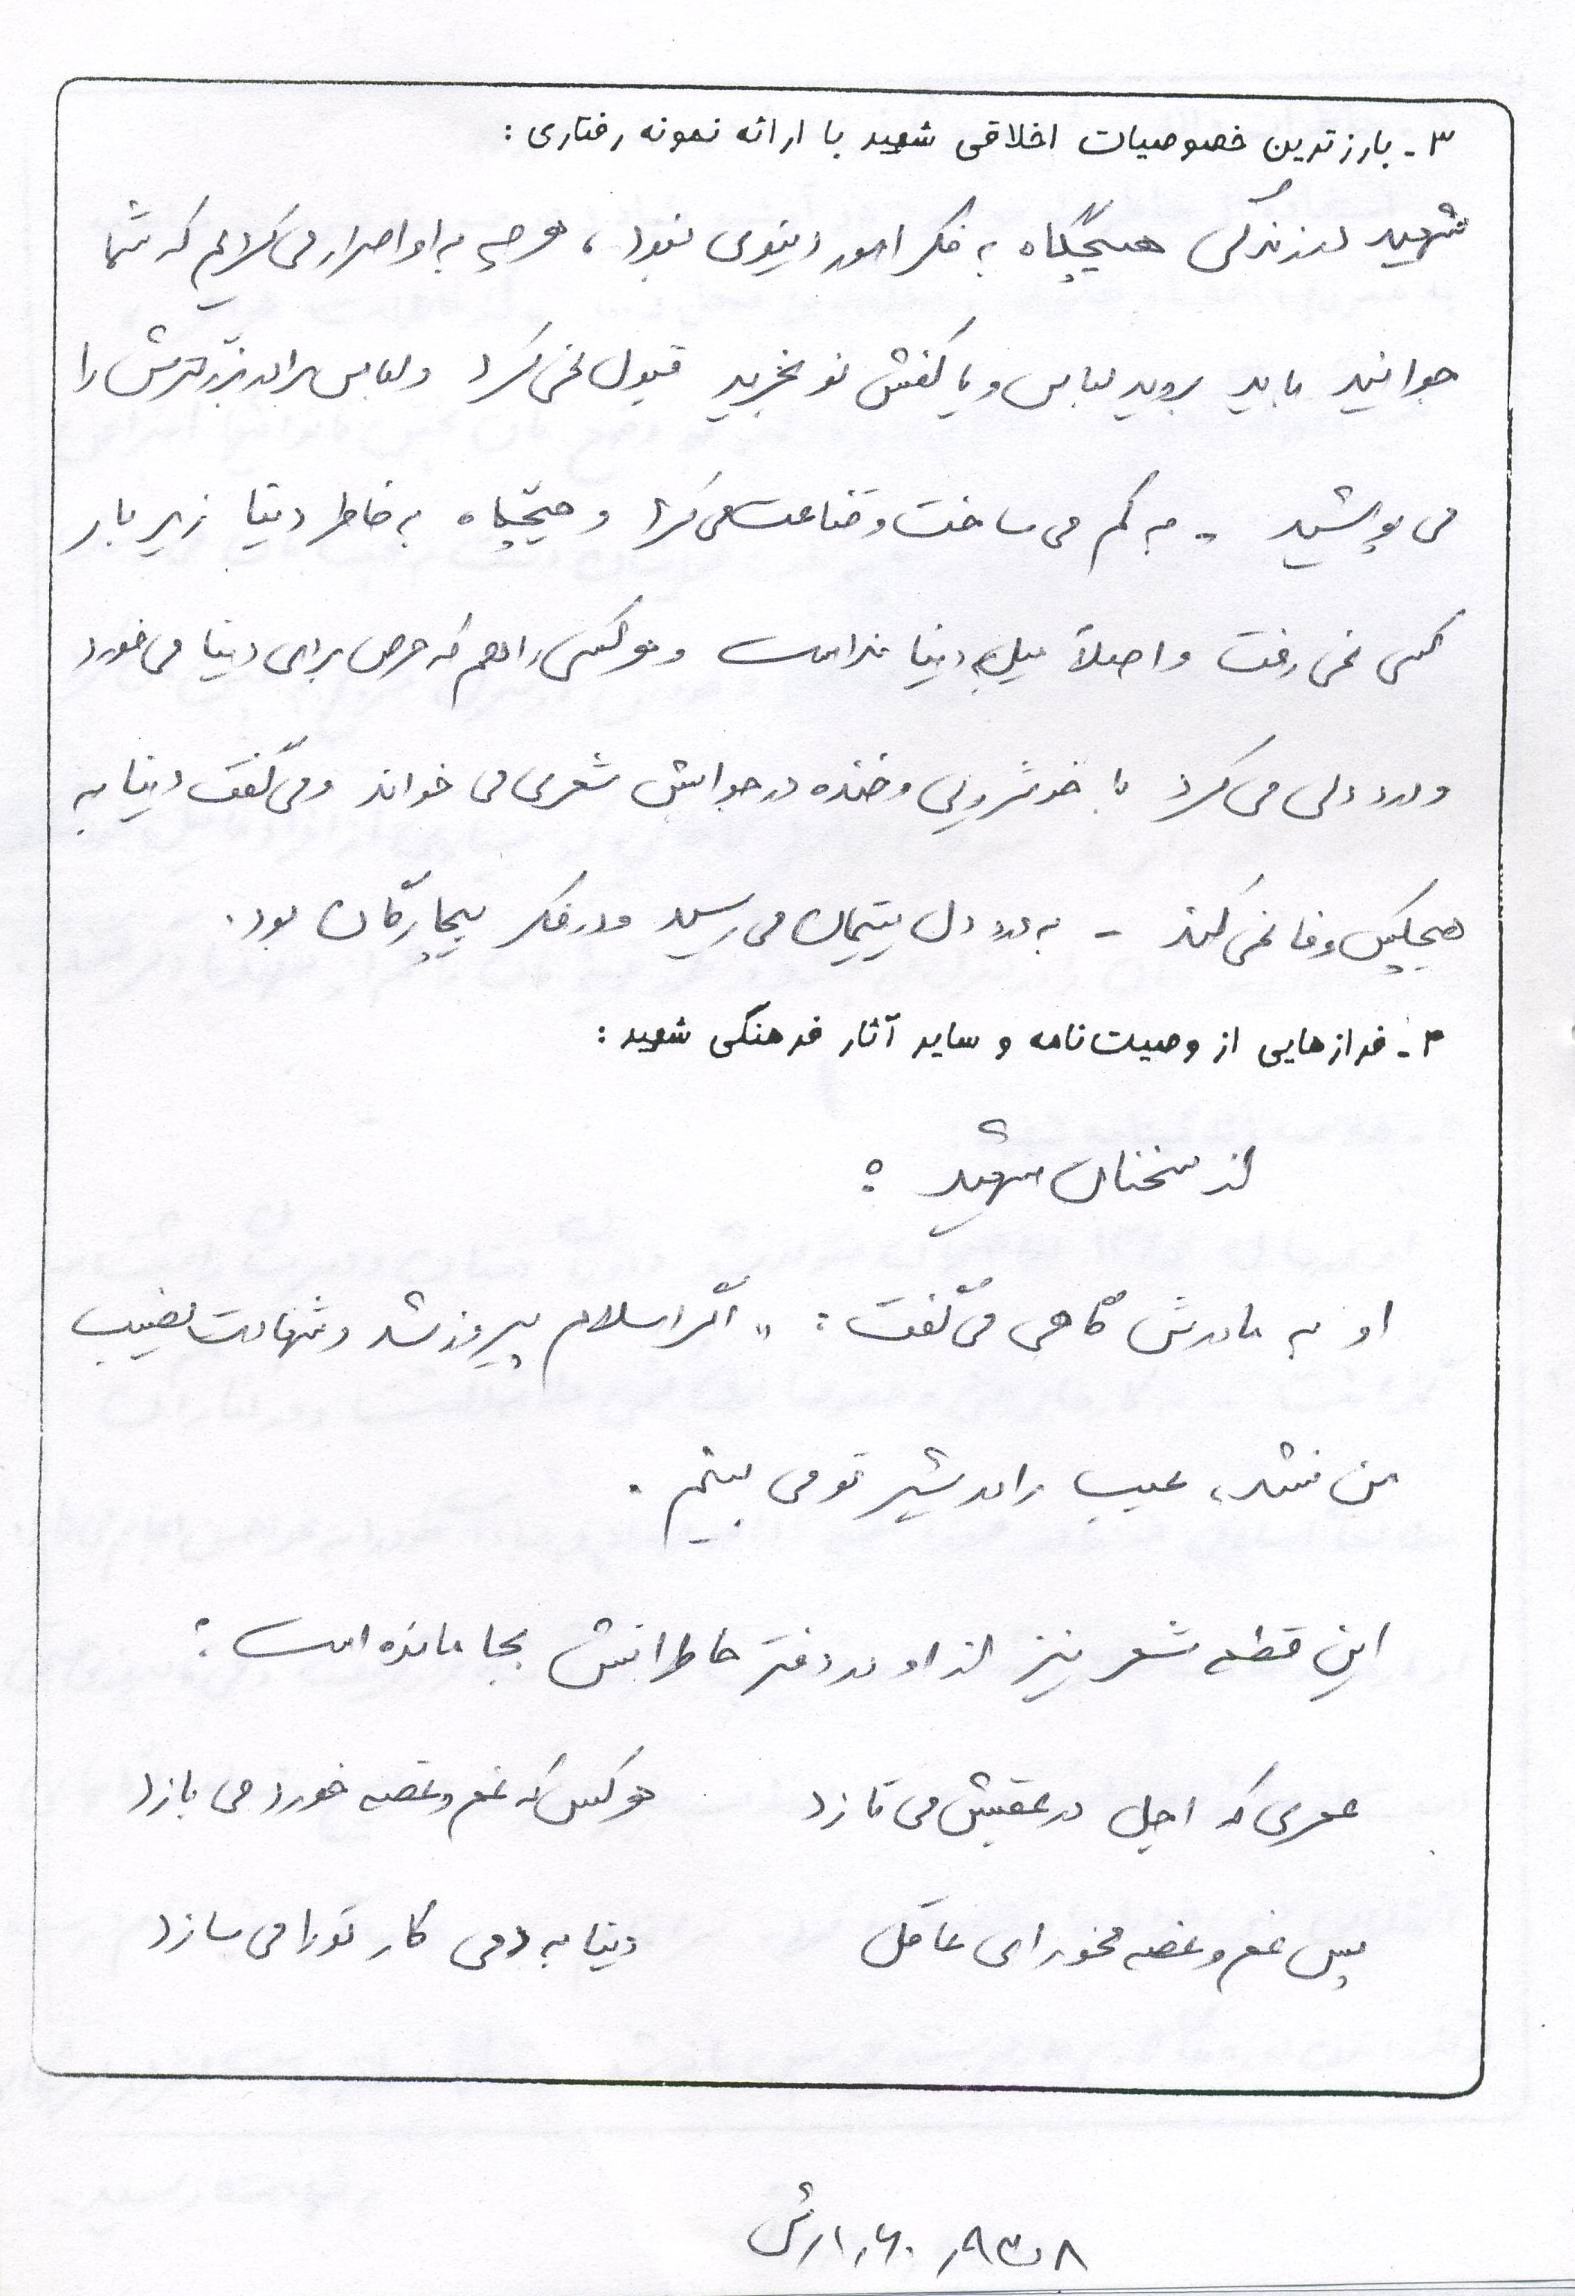 ۳- بارزترین خصوصیات اخلاقی شهید با ارائه نمونه رفتاری:
شهید در زندگی هیچگاه به فکر امور دنیوی نبود، هرچه به او اصرار می کردیم که شما
جوانید باید بروید لباس و یا کفش نو بخرید قبول نمی کرد و لباس برادر بزرگترش را
می پوشید - به کم می ساخت و قناعت می کرد و هیچگاه به خاطر دنیا زیر بار
کسی نمی رفت و اصلاً میل به دنیا نداشت و هر کسی را هم که حرص برای دنیا می خورد
و درد دلی می کرد با خوشرویی و خنده در جوابش شعری می خواند و می گفت دنیا به
هیچکس وفا نمی کند - به درد دل یتیمان می رسید و در فکر بیچارگان بود.
۴- فرازهایی از وصیت نامه و سایر آثار فرهنگی شهید:
از سخنان شهید:
او به مادرش گاهی می گفت: «اگر اسلام پیروز شد و شهادت نصیب
من نشد، عیب را در شیر تو می بینم.
این قطعه شعر نیز از او در دفتر خاطراتش بجا مانده است:
عمری که اجل در عقبش می تازد هر کس که غم و غصه خورد می بازد
پس غم و غصه مخور ای عاقل دنیا به دمی کار تو را می سازد